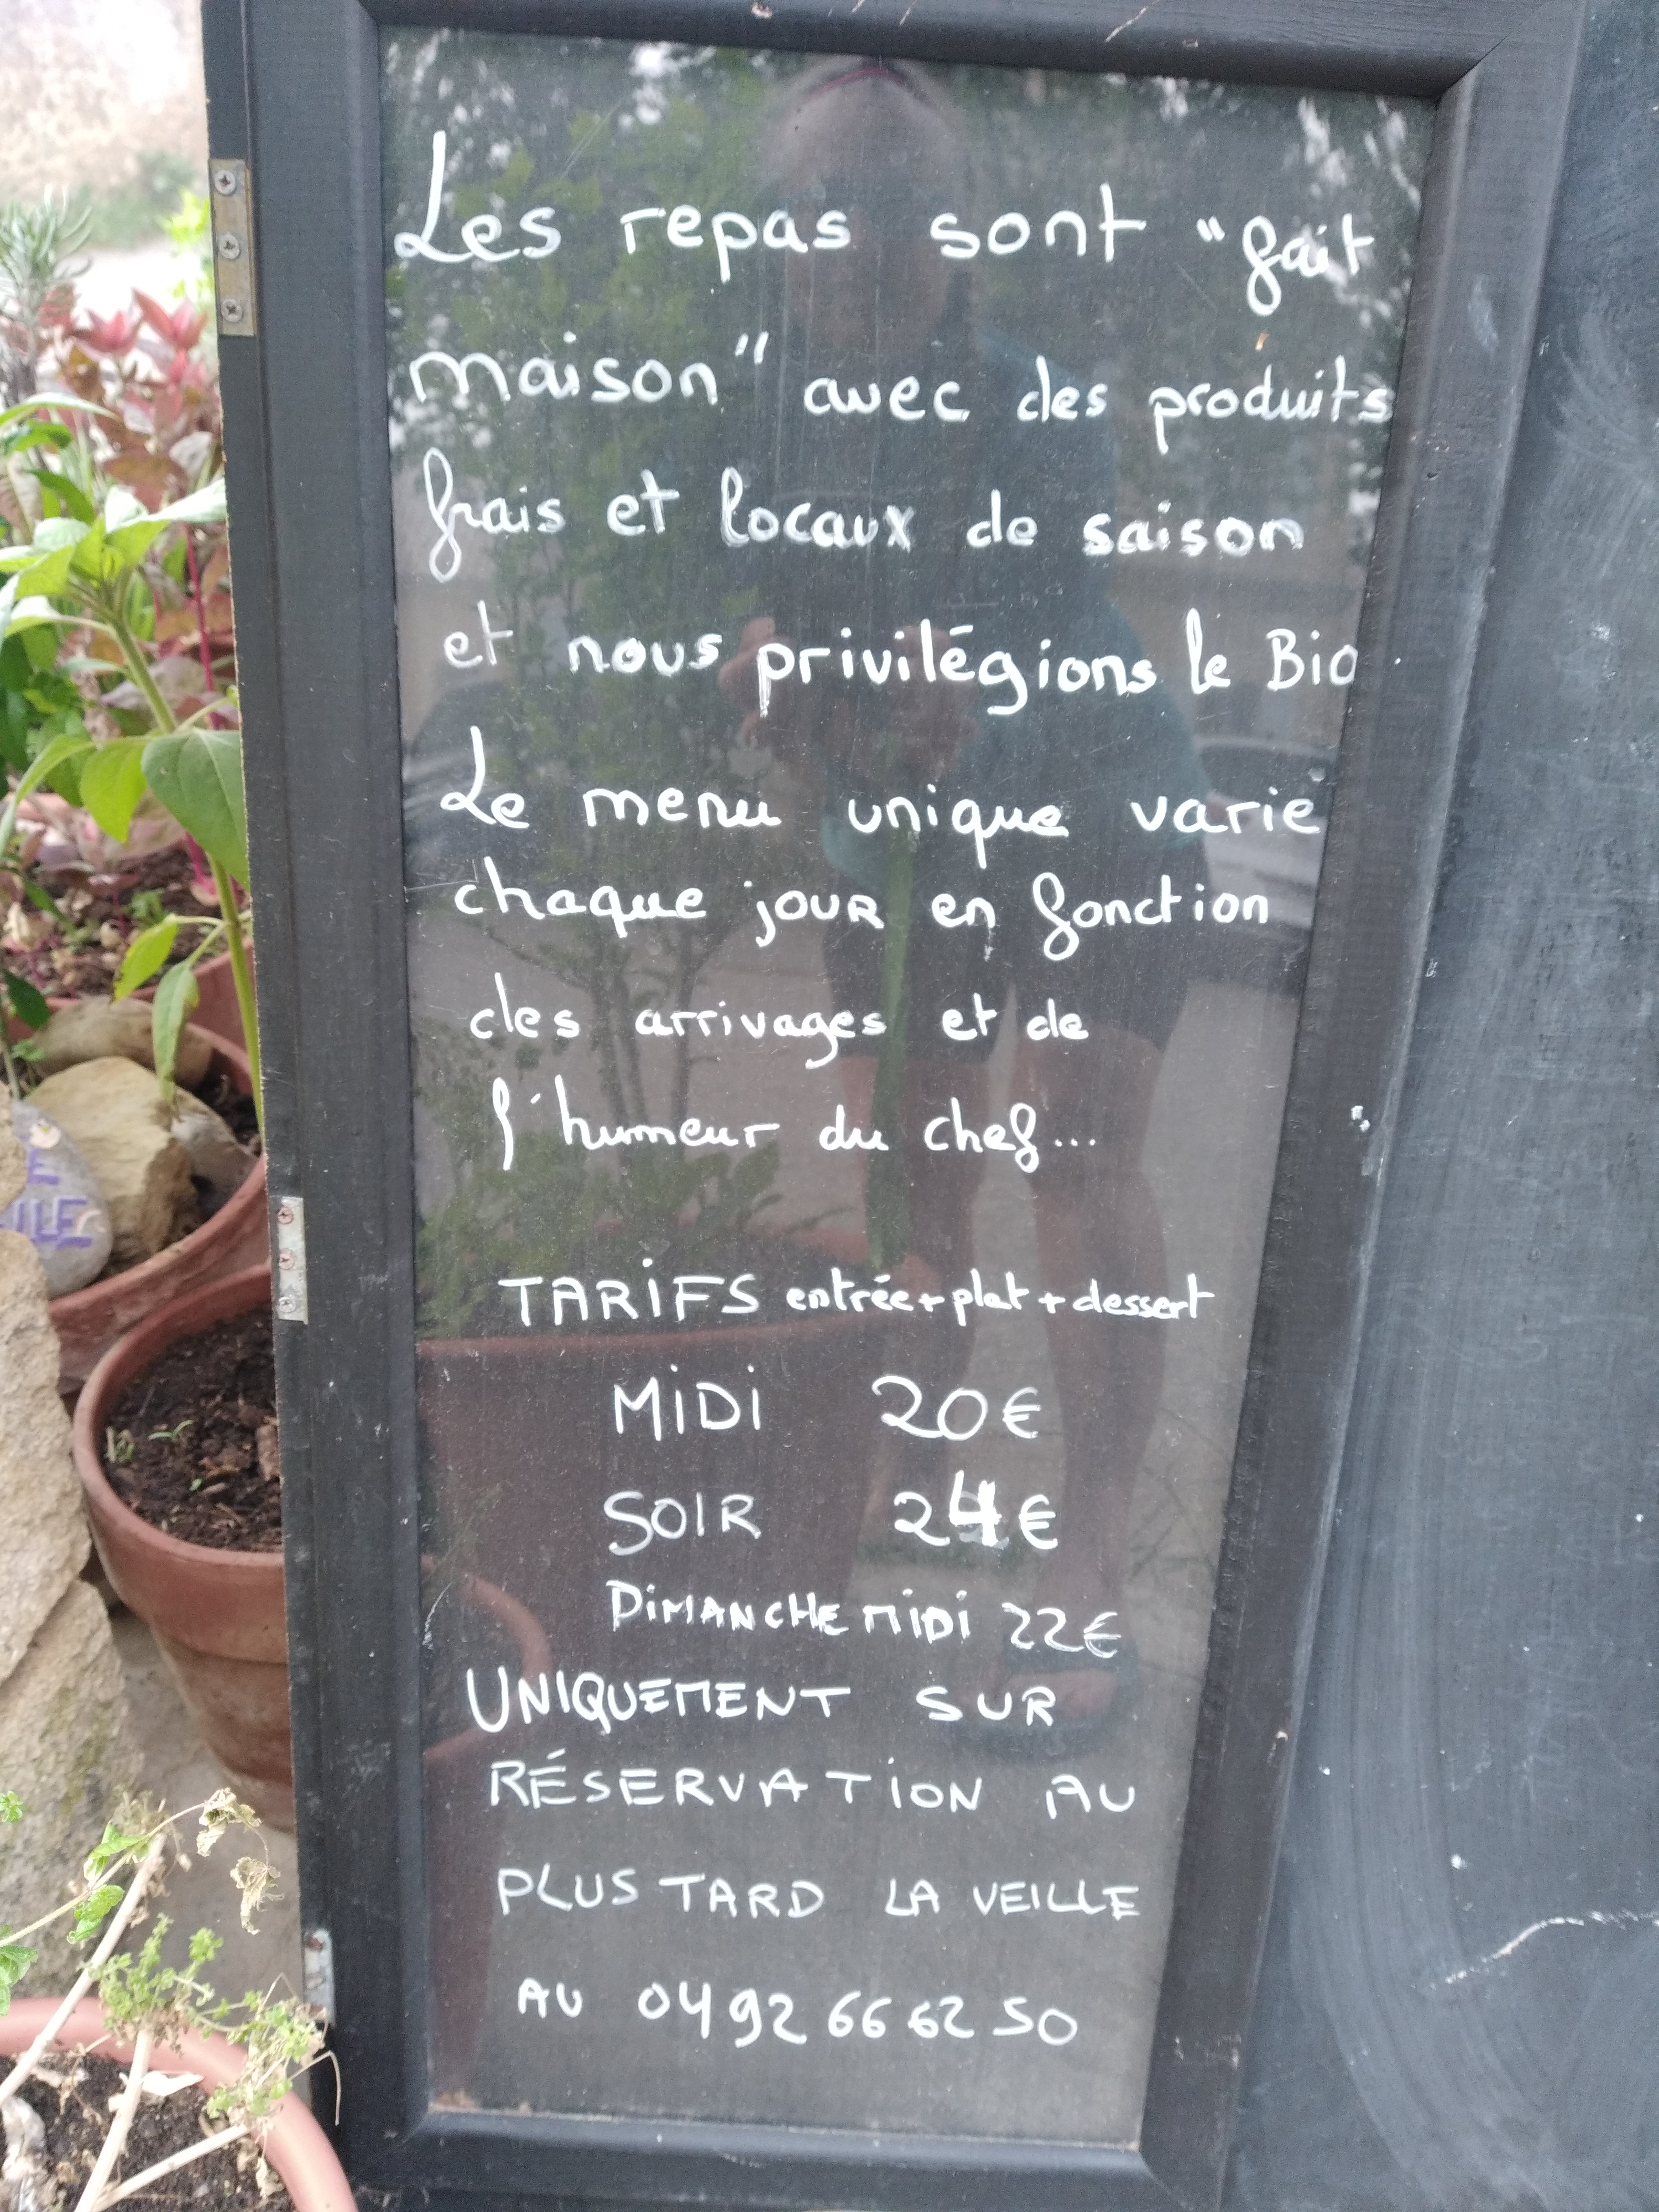 Les repas sont "fait
maison" avec des produits
frais et locaux de saison
et nous privilégions le Bio.
Le menu unique varie
chaque jour en fonction
des arrivages et de
l'humeur du chef...
TARIFS entrée + plat + dessert
MIDI 20€
SOIR 24€
DIMANCHE MIDI 22€
UNIQUEMENT SUR
RÉSERVATION AU
PLUS TARD LA VEILLE
AU 04 92 66 62 50